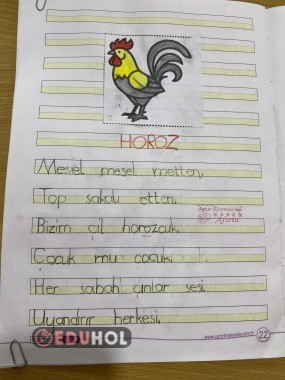 HOROZ
Mesel mesel metten,
Top sakalı etten.
Bizim çil horozcuk.
Çocuk mu çocuk.
Her sabah çınlar sesi.
Uyandırır herkesi.
EDUHOL
22